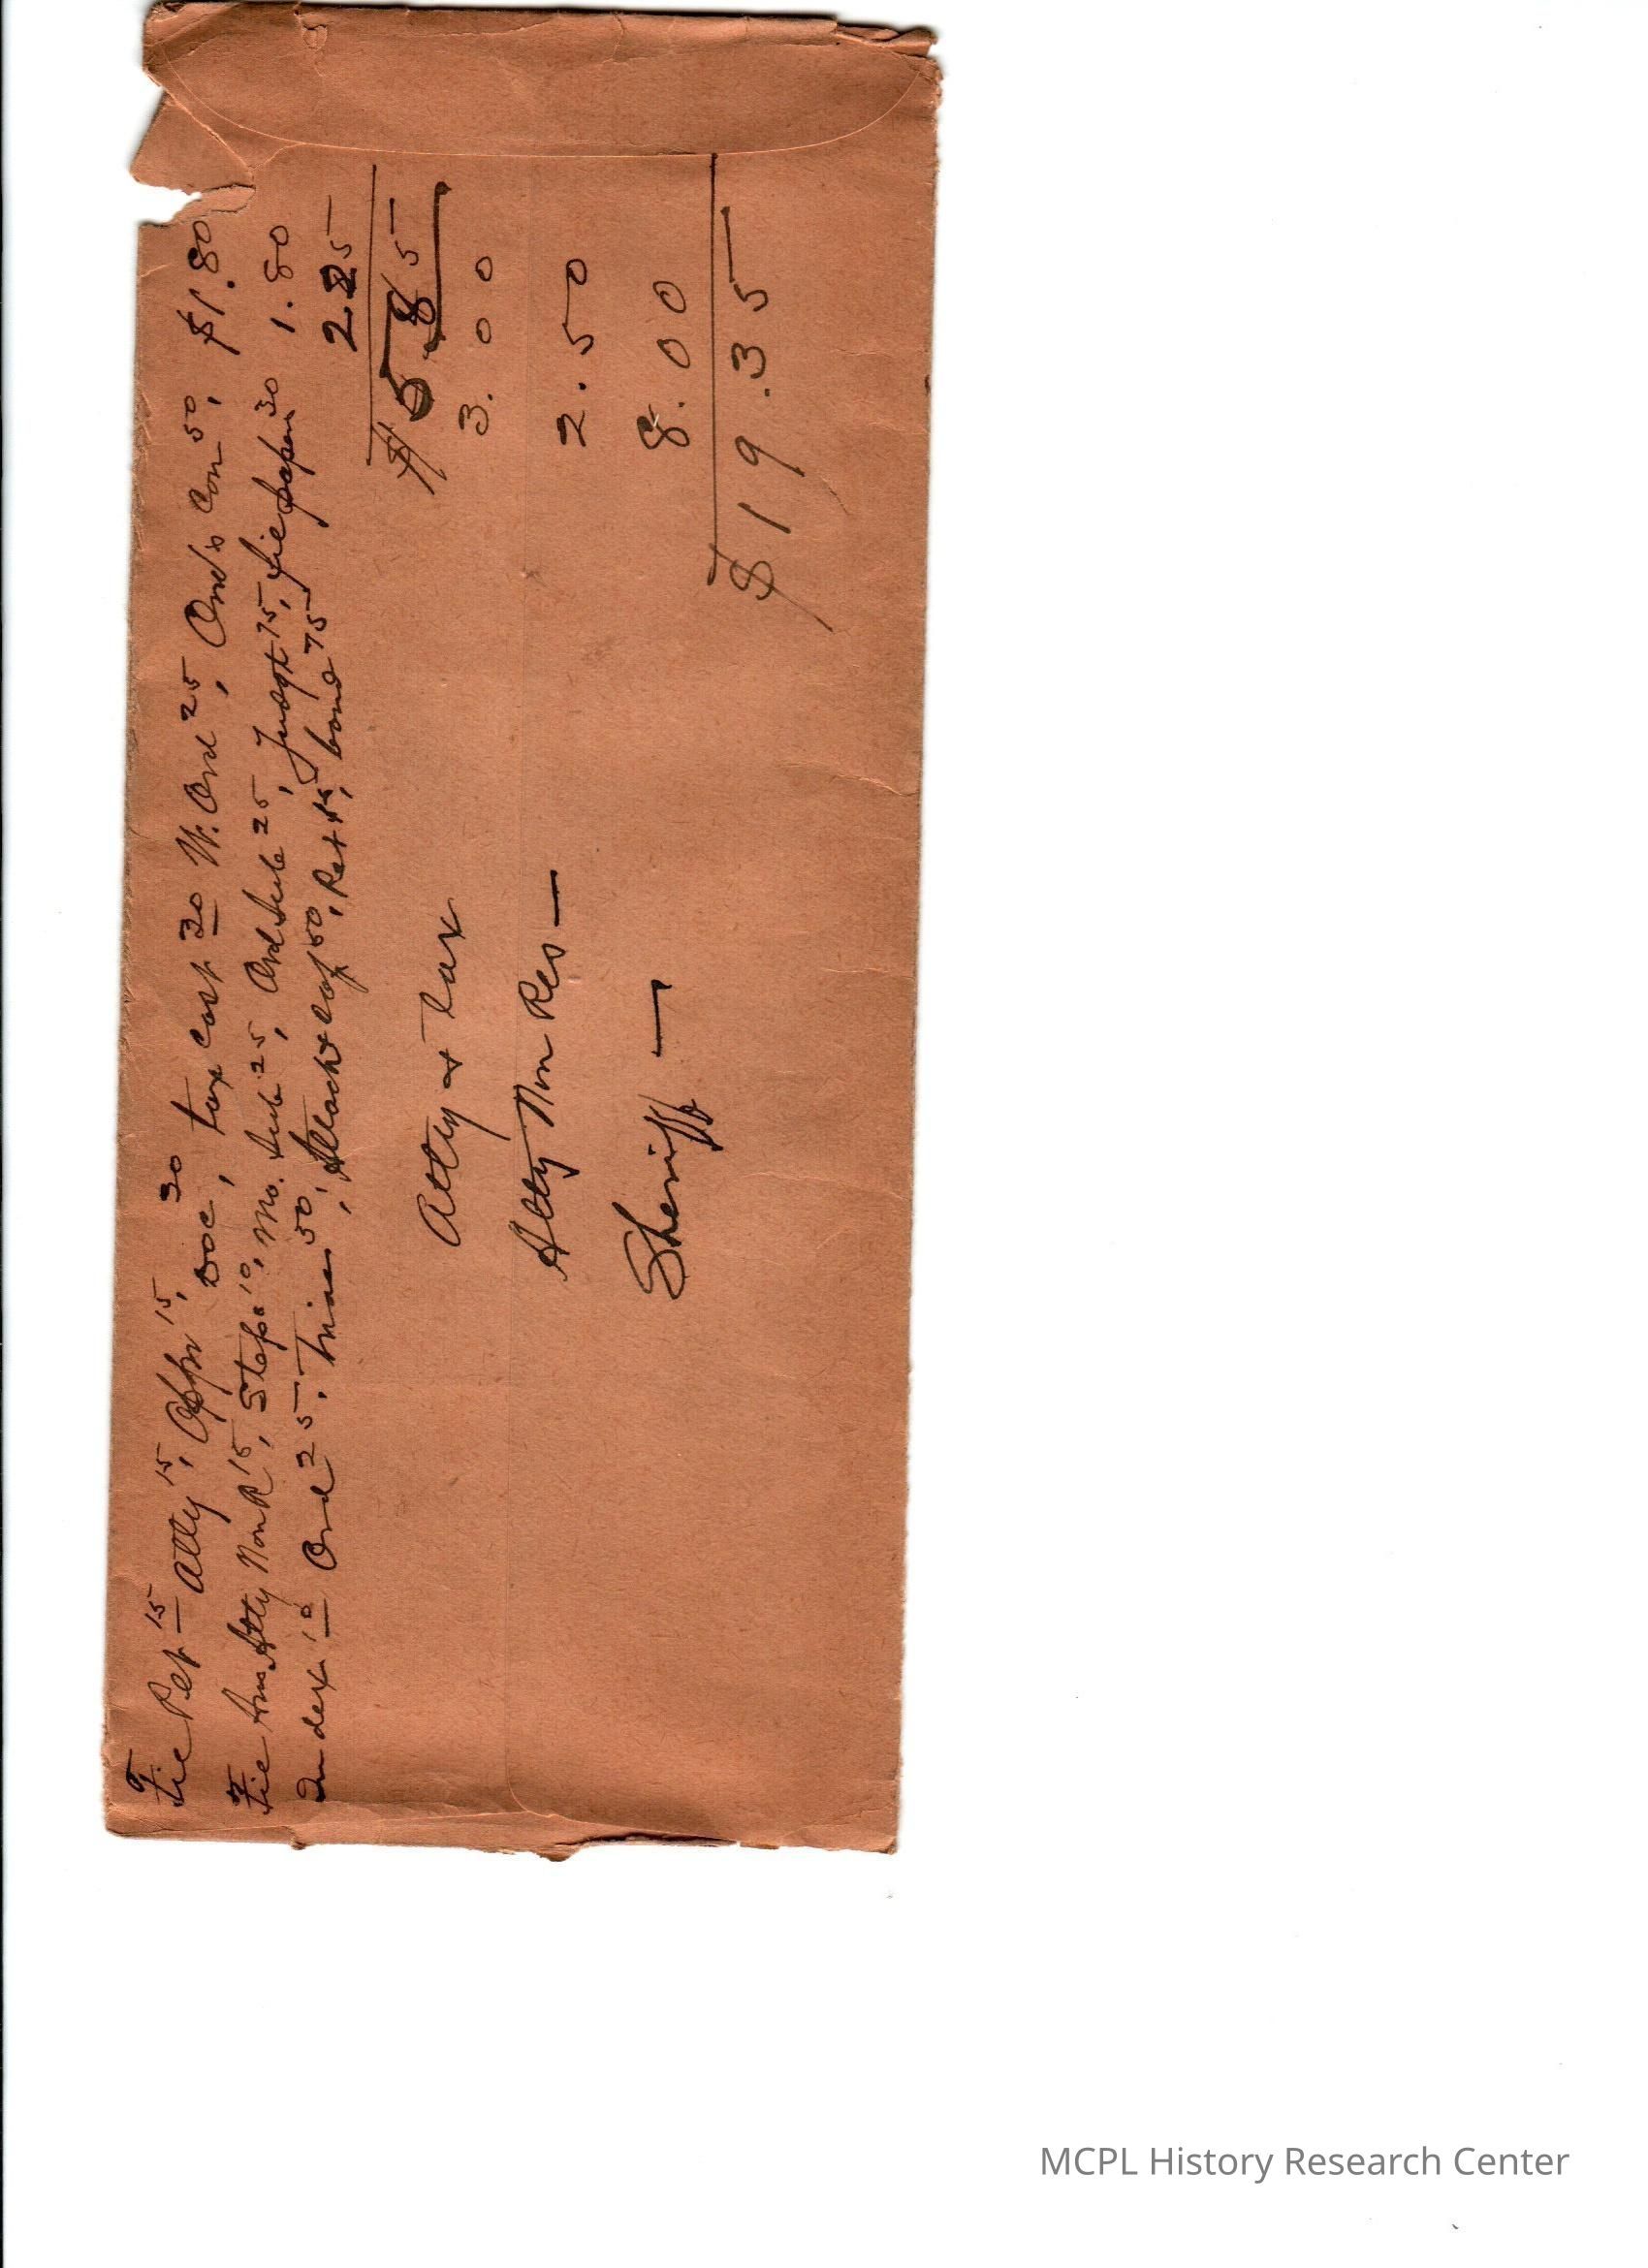 File Pet 15 — Atty 15, Appr 15, Doc 30, tax cost 30 W. Ord 25, Ords Con 50, $1.80
File Ans Atty Non R 15, Steps 10, Mo. Sub 25, Ord Sub 25, Judgt 75, file papers 30 1.80
Index 10 Ord 25, 50, Attacht Copy 50, Ret 15, bond 75 2.25
$5.85
Atty & Tax 3.00
Atty Non Res — 2.50
Sheriff — 8.00
$19.35
MCPL History Research Center